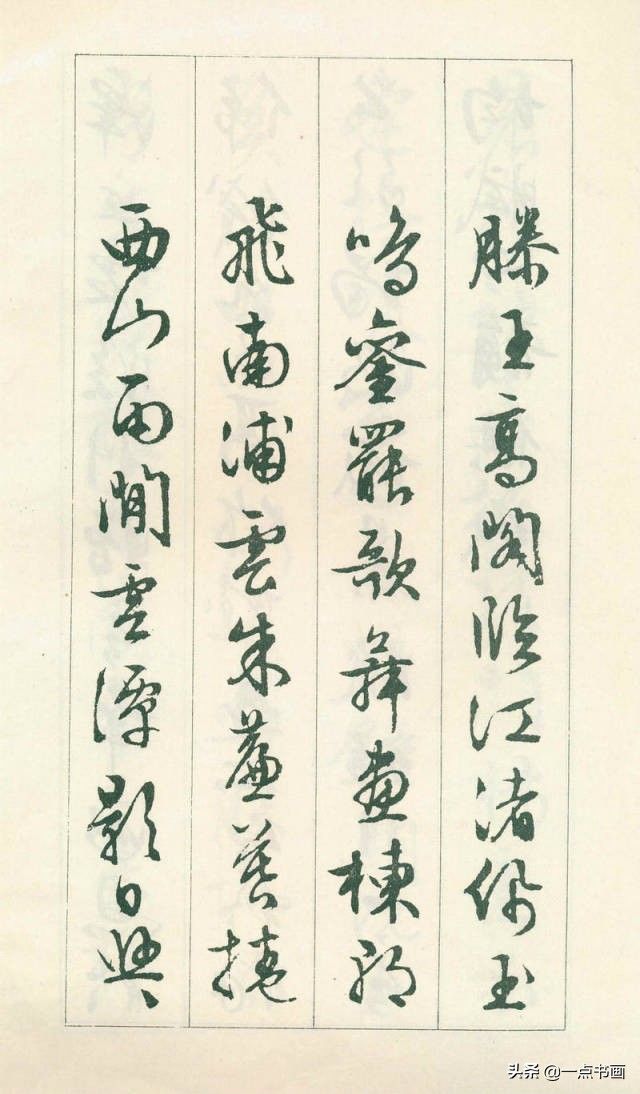 滕王高閣臨江渚佩玉
鳴鑾罷歌舞畫棟朝
飛南浦雲朱簾暮捲
西山雨閒雲潭影日悠
头条 @一点书画